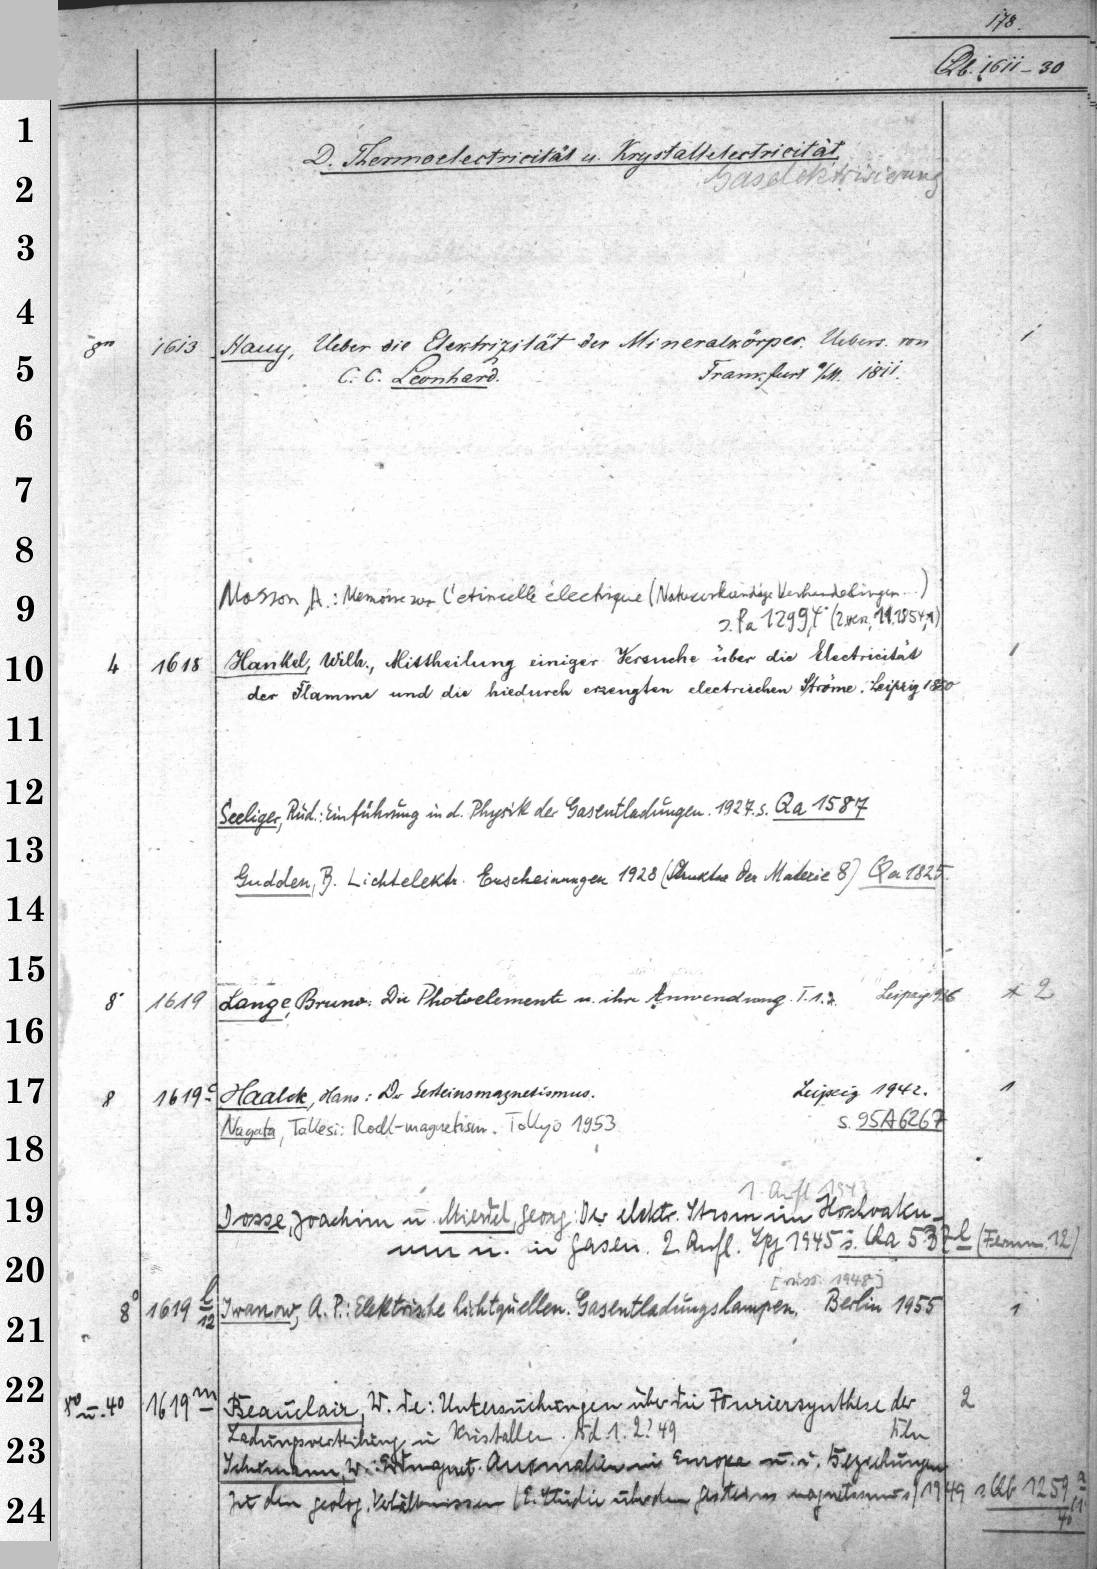 178.
Qb. 1611-30
D. Thermoelectricität u. Krystallelectricität
Gaselektrisierung
8° 1613 Hauy, Ueber die Elektrizität der Mineralkörper. Uebers. von 1
C. C. Leonhard. Frankfurt a/M. 1811.
Masson, A.: Memoire sur l'étincelle électrique (Natuurkundige Verhandelingen...)
s. Pa 1299,4° (2. , 11, 1854,1)
4 1618 Hankel, Wilh., Mittheilung einiger Versuche über die Electricität 1
der Flamme und die hiedurch erzeugten electrischen Ströme. Leipzig 1850
Seeliger, Rud.: Einführung in d. Physik der Gasentladungen. 1927. s. Qa 1587
Gudden, B. Lichtelektr. Erscheinungen 1928 (Struktur der Materie 8) Qa 1825.
8° 1619 Lange, Bruno: Die Photoelemente u. ihre Anwendung. T. 1.2. Leipzig 1936 * 2
8 1619 c Haalck, Hans: Der Gesteinsmagnetismus. Leipzig 1942. 1
Nagata, Takesi: Rock-magnetism. Tokyo 1953 s. 95A6267
1. Aufl 1943
Dosse, Joachim u. Mierdel, Georg: Der elektr. Strom im Hochvaku-
um u. in Gasen. 2. Aufl. Lpz 1945 s. Qa 537 l (Fernm. 12)
[russ. 1948]
8° 1619 l/12 Iwanow, A. P.: Elektrische Lichtquellen. Gasentladungslampen. Berlin 1955 1
8° u. 4° 1619 m Beauclair, W. de: Untersuchungen über die Fouriersynthese der 2
Ladungsverteilung in Kristallen. Bd 1. 2? 49 Köln
Schümann, W.: Erdmagnet. Anomalien in Europa u. i. Beziehungen
zu den geolog. Verhältnissen (E. Studie über den Gesteinsmagnetismus) 1949 s. Qb 1259 a